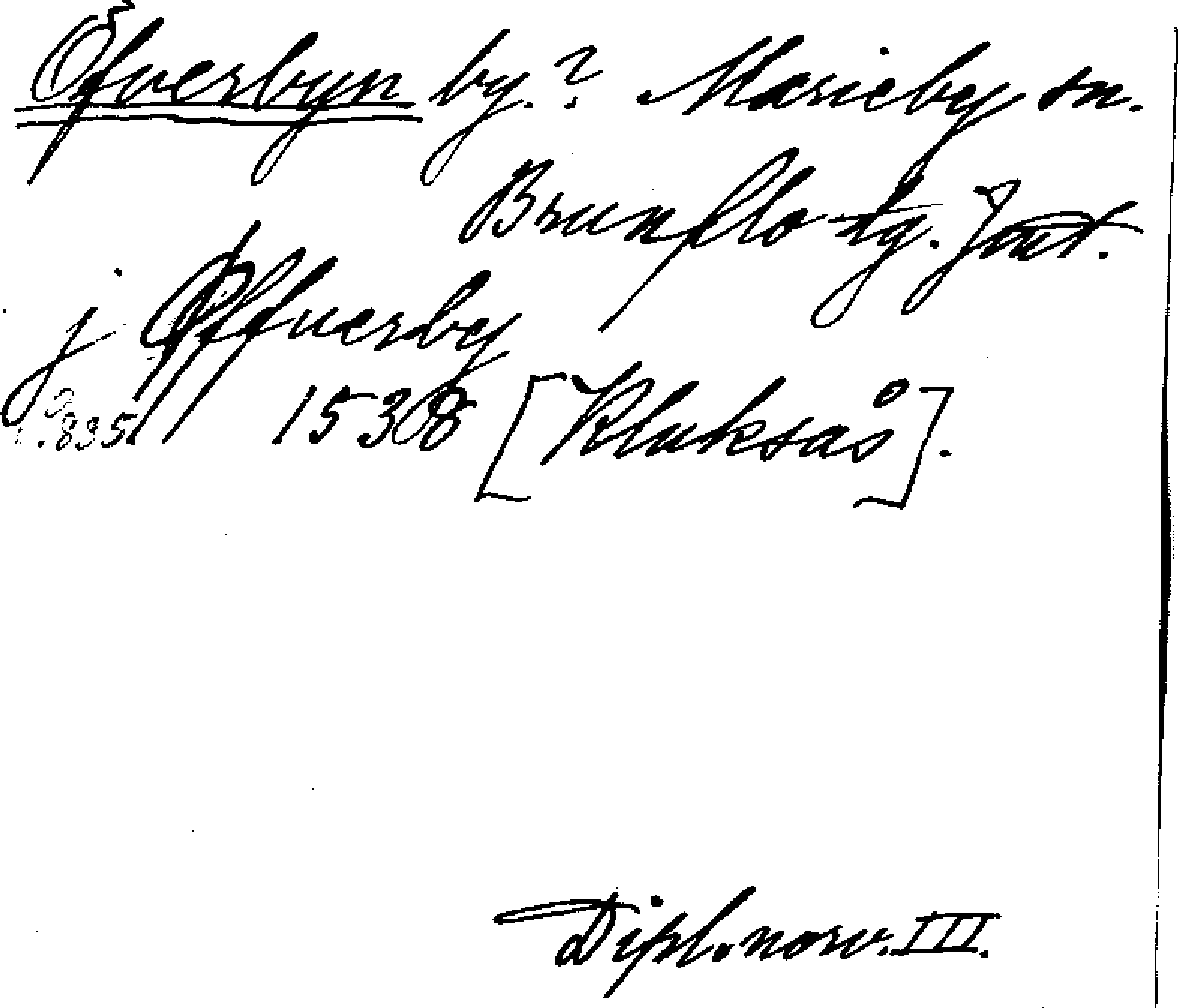 Öfverbyn by.? Marieby sn.
Brunflo tg. Jmt.
j Øffuerby
1538 [Kluksås].
Dipl. norv. III.